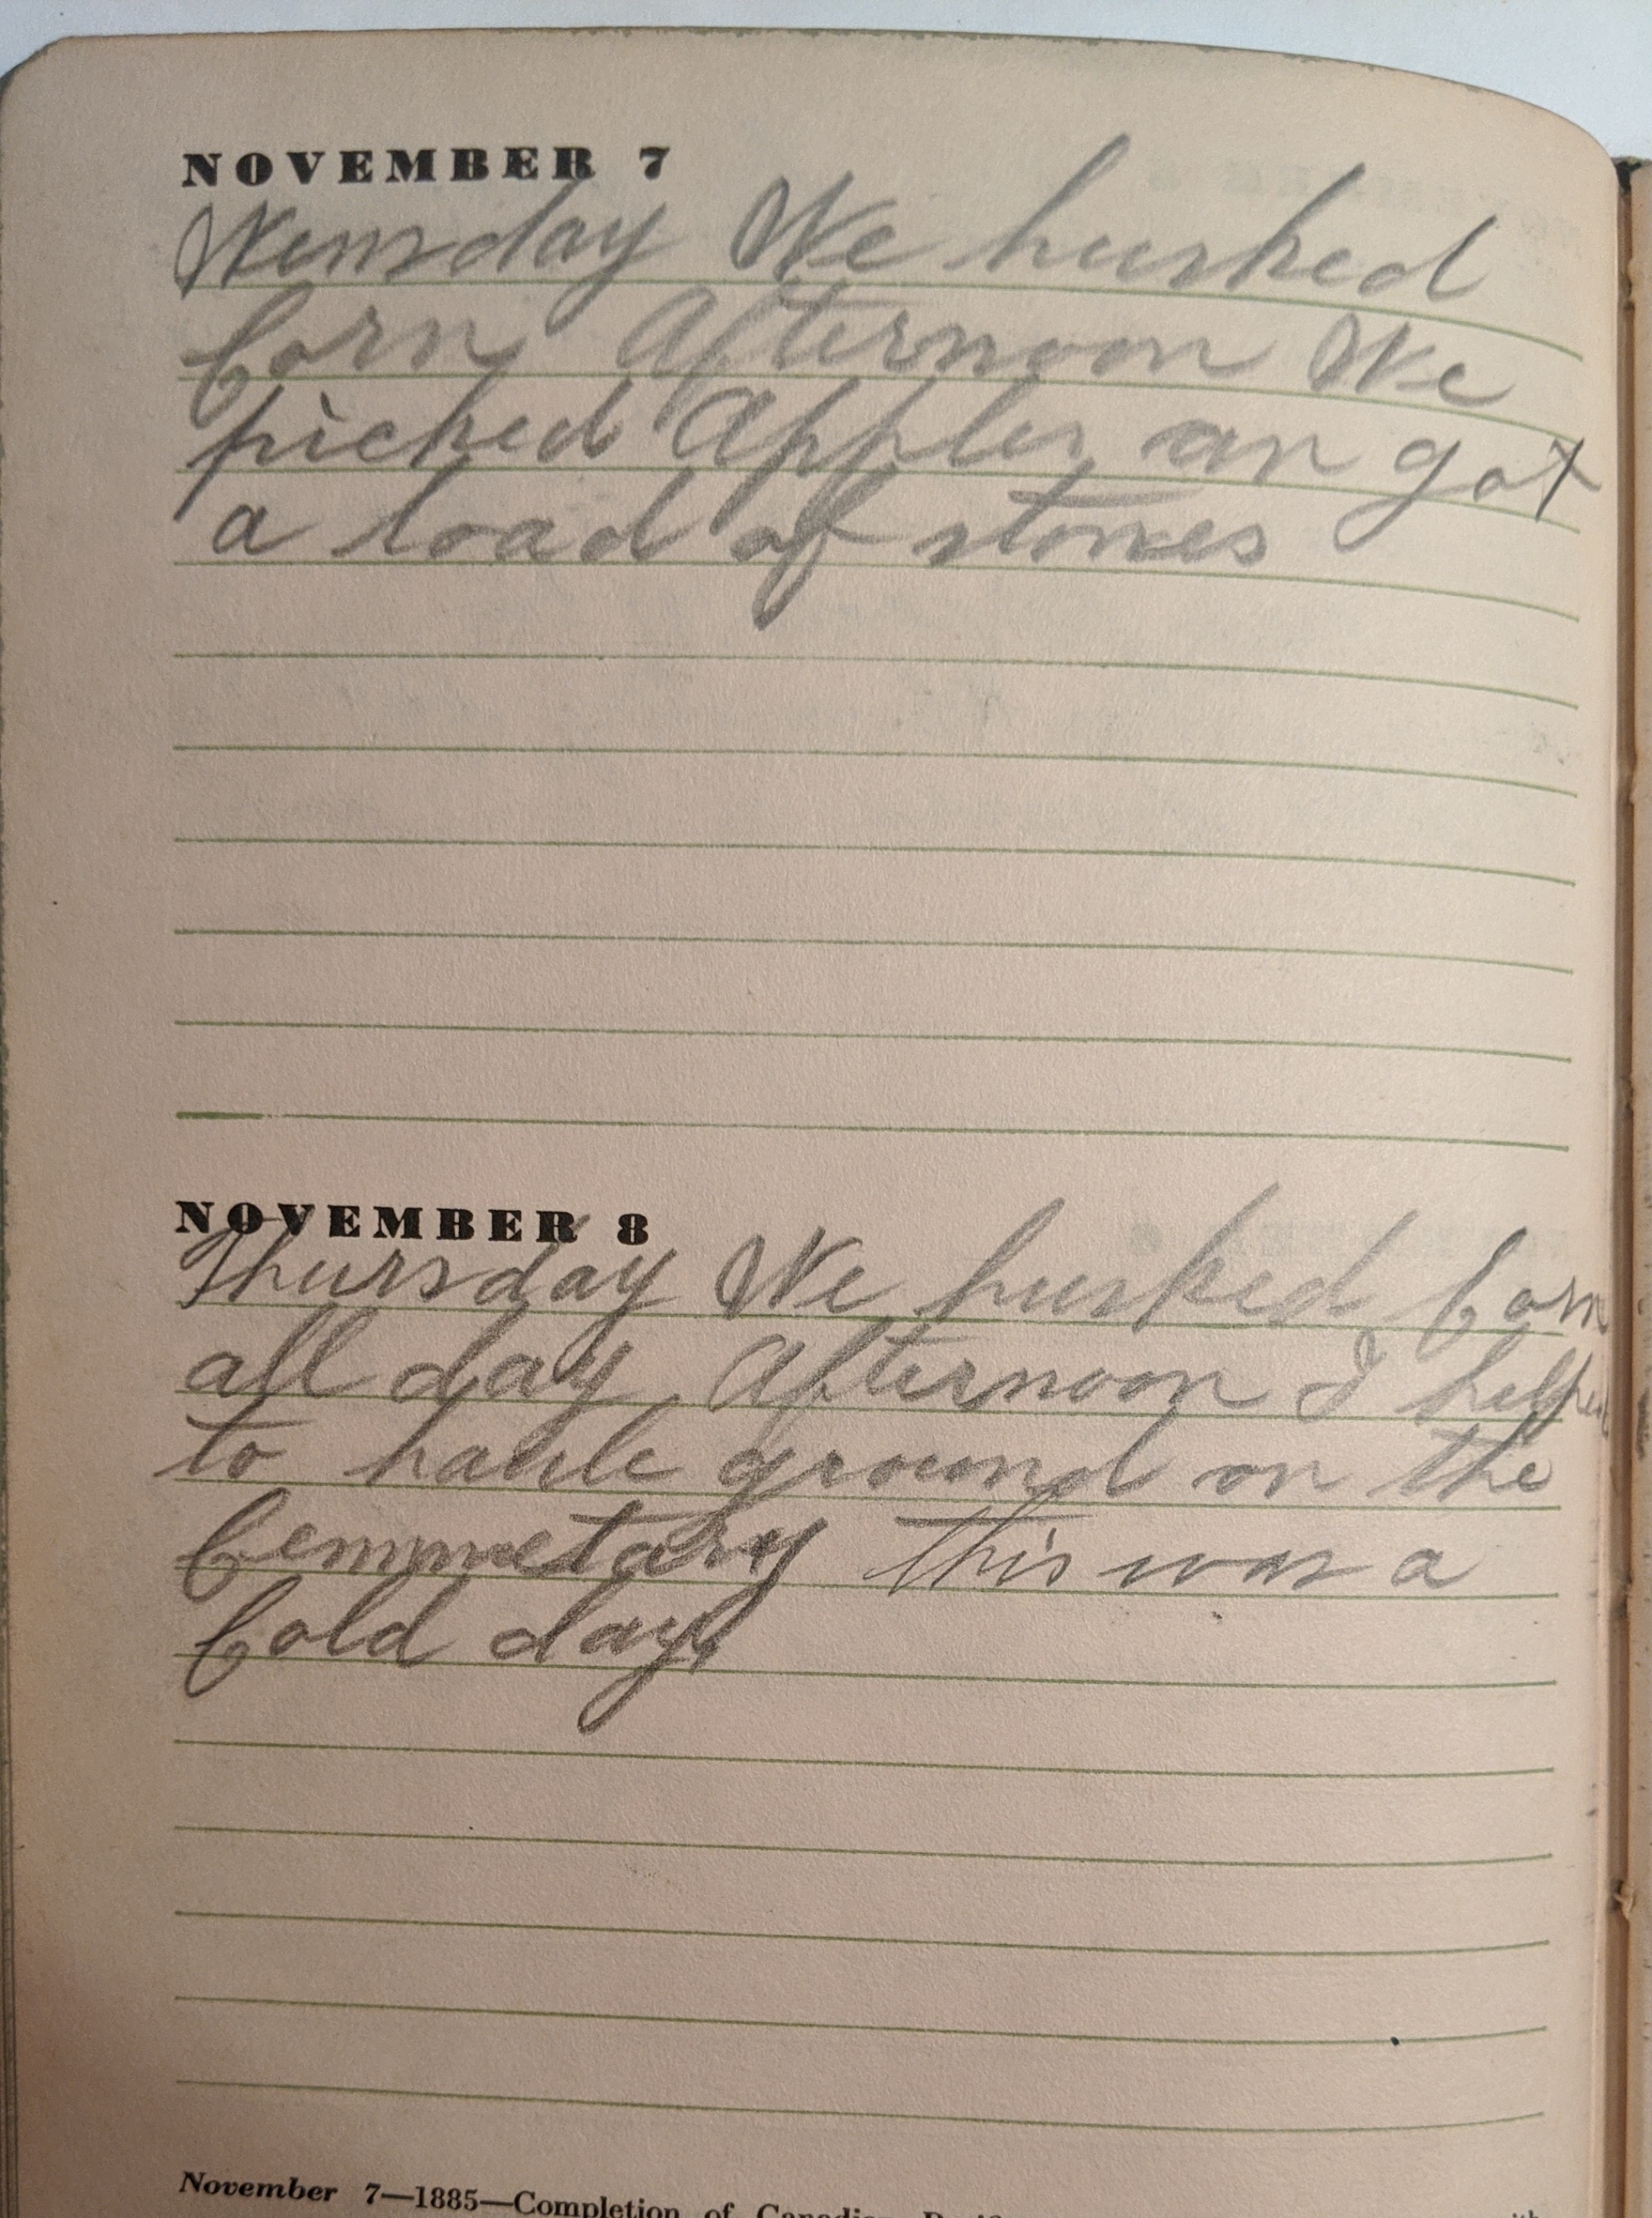 NOVEMBER 7
Wensday We husked
Corn Afternoon We
picked Apples an got
a load of stones
NOVEMBER 8
Thursday We husked Corn
all day. Afternoon I helped
to haule ground on the
Cemmetary this was a
Cold day.
November 7—1885—Completion of Canadian